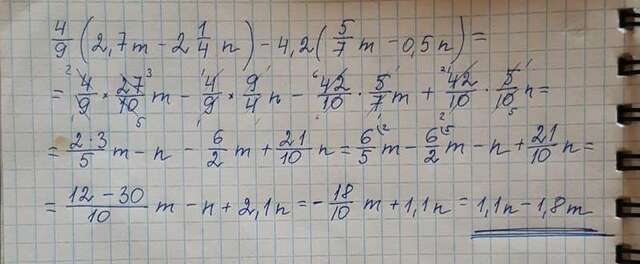 4/9 (2,7m - 2 1/4 n) - 4,2 (5/7 m - 0,5n) =
= 4/9 × 27/10 m - 4/9 × 9/4 n - 42/10 · 5/7 m + 42/10 · 5/10 n =
= 2·3/5 m - n - 6/2 m + 21/10 n = 6/5 m - 6/2 m - n + 21/10 n =
= 12-30/10 m - n + 2,1n = - 18/10 m + 1,1n = 1,1n - 1,8m